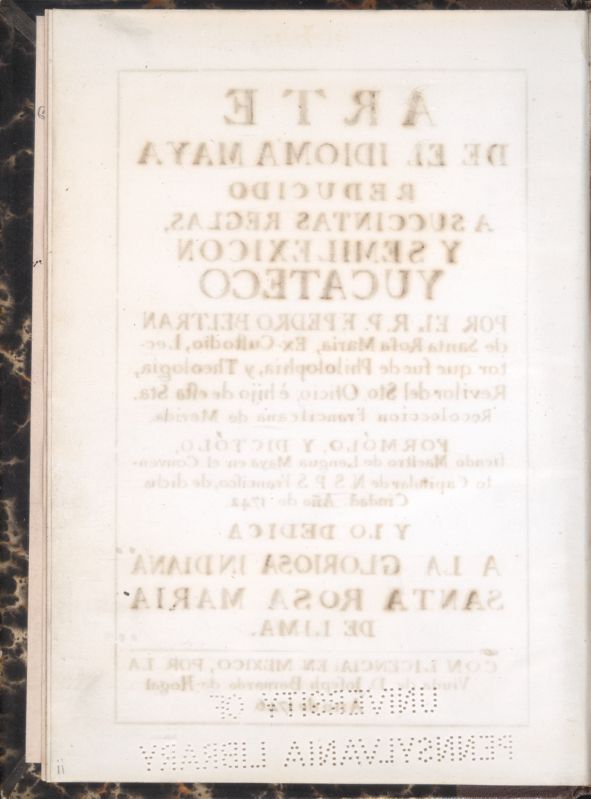 ARTE
DE EL IDIOMA MAYA
REDUCIDO
A SUCCINTAS REGLAS,
Y SEMILEXICON
YUCATECO
POR EL R. P. F. PEDRO BELTRAN
de Santa Rosa Maria, Ex-Custodio, Lec-
tor que fue de Philosophia, y Theologia,
Revisor del Sto. Oficio, è hijo de esta Sta.
Recoleccion Franciscana de Merida.
FORMÓLO, Y DICTÓLO,
siendo Maestro de Lengua Maya en el Conven-
to Capitular de N. S. P. S. Francisco, de dicha
Ciudad. Año de 1742.
Y LO DEDICA
A LA GLORIOSA INDIANA
SANTA ROSA MARIA
DE LIMA.
CON LICENCIA: EN MEXICO, POR LA
Viuda de D. Joseph Bernardo de Hogal
Año de 1746
UNIVERSITY OF
PENNSYLVANIA LIBRARY